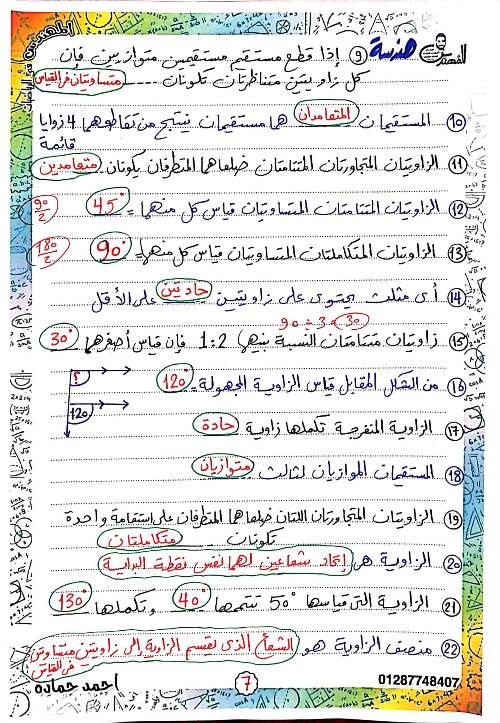 المهندس في الرياضيات
هندسة
⑨ إذا قطع مستقيم مستقيمين متوازيين فإن
كل زاويتين متناظرتان تكونان متساويتان فى القياس
⑩ المستقيمان المتعامدان هما مستقيمان ينتج من تقاطعهما 4 زوايا
قائمة
⑪ الزاويتان المتجاورتان المتتامتان ضلعاهما المتطرفان يكونان متعامدين
⑫ الزاويتان المتتامتان المتساويتان قياس كل منهما = 45° 90/2
⑬ الزاويتان المتكاملتان المتساويتان قياس كل منهما = 90° 180/2
⑭ أى مثلث يحتوى على زاويتين حادتين على الأقل
90 ÷ 3 = 30
⑮ زاويتان متتامتان النسبة بينهما 1:2 فإن قياس أصغرهما 30°
⑯ من الشكل المقابل قياس الزاوية المجهولة = 120°
؟
120
⑰ الزاوية المنفرجة تكملها زاوية حادة
⑱ المستقيمان الموازيان لثالث متوازيان
⑲ الزاويتان المتجاورتان اللتان ضلعاهما المتطرفان على استقامة واحدة
تكونان متكاملتان
⑳ الزاوية هى إتحاد شعاعين لهما نفس نقطة البداية
㉑ الزاوية التى قياسها 50° تتممها 40° وتكملها 130°
㉒ منصف الزاوية هو الشعاع الذى يقسم الزاوية إلى زاويتين متساويتين
فى القياس
احمد حماده
7
01287748407